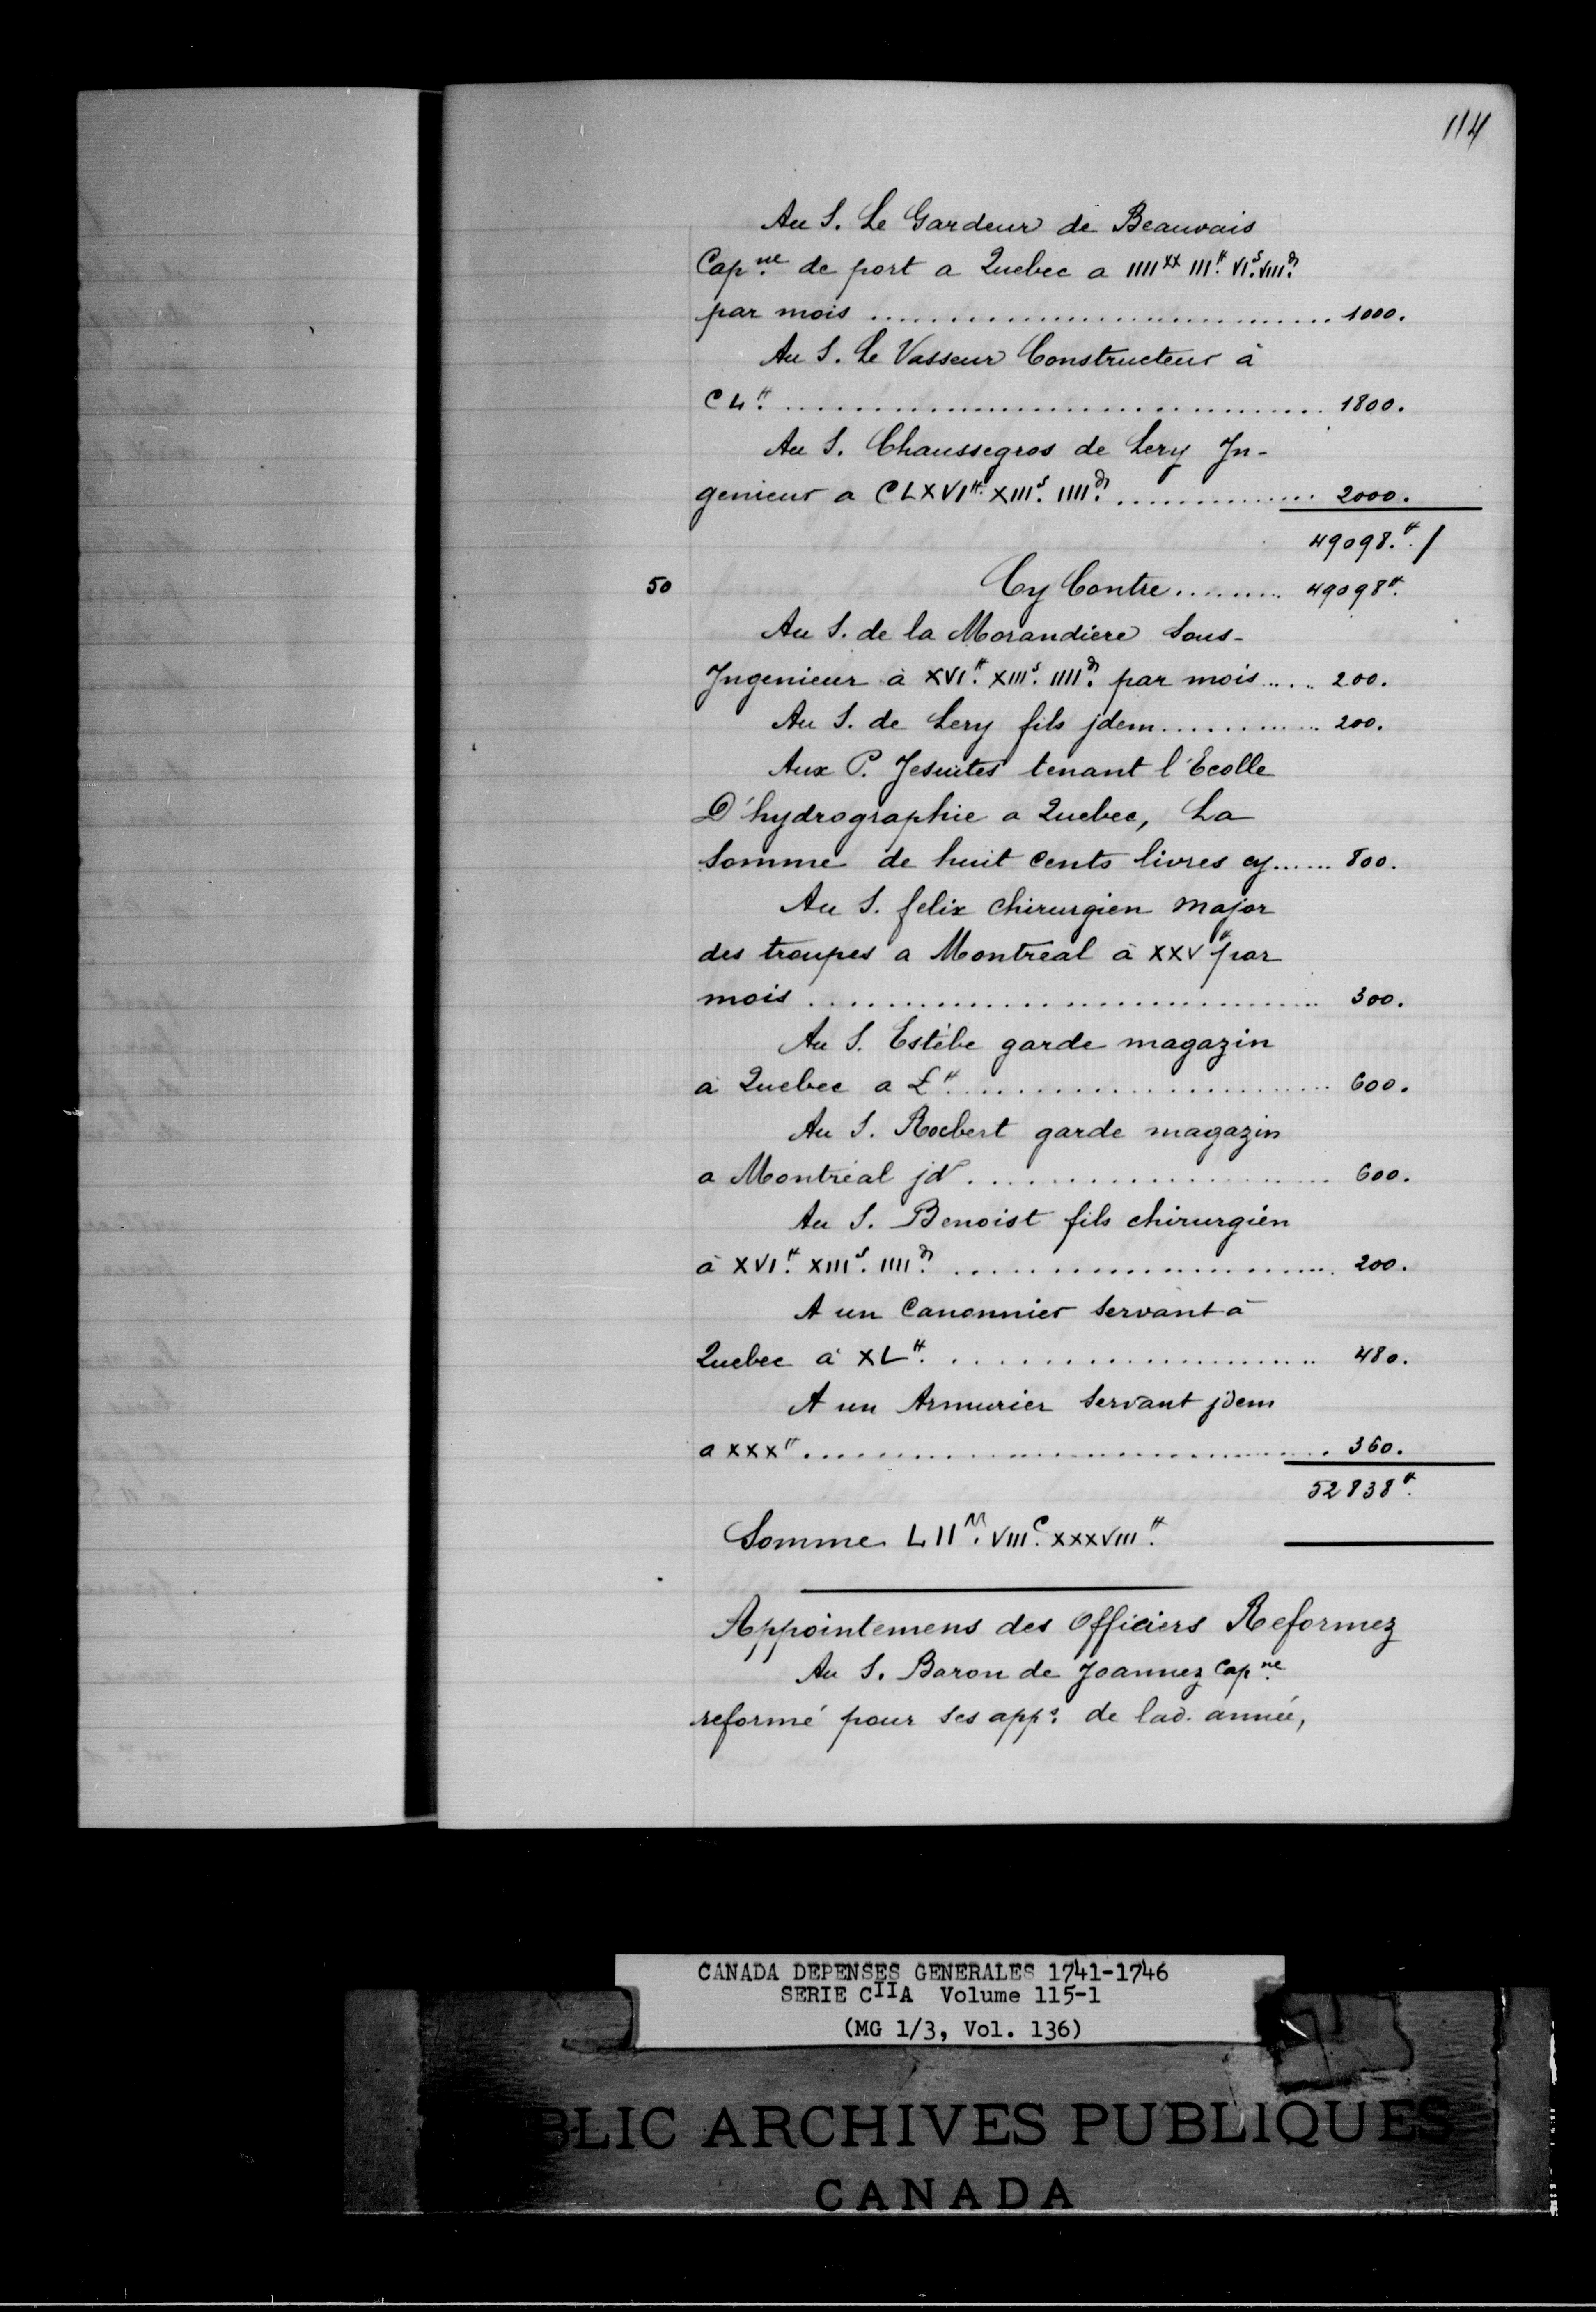 114
Au S. Le Gardeur de Beauvais
Cap.ne de port a Quebec a IIIIxx III# VIs. VIIId.
par mois .......... 1000.
Au S. Le Vasseur Constructeur à
CL# .......... 1800.
Au S. Chaussegros de Lery In-
genieur a CLXVI# XIIIs. IIIId. .......... 2000.
49098.# /
50 Cy Contre .......... 49098#.
Au S. de la Morandiere Sous-
Jngenieur à XVI# XIIIs. IIIId. par mois ..... 200.
Au S. de Lery fils jdem .......... 200.
Aux P. Jesuites tenant l'Ecolle
D'hydrographie a Quebec, La
Somme de huit cents livres cy ...... 800.
Au S. felix chirurgien major
des troupes a Montreal à XXV# par
mois .......... 300.
Au S. Estèbe garde magazin
à Quebec a L# .......... 600.
Au S. Rocbert garde magazin
a Montréal jd .......... 600.
Au S. Benoist fils chirurgien
à XVI# XIIIs. IIIId. .......... 200.
A un Canonnier Servant à
Quebec à XL# .......... 480.
A un Armurier Servant jdem
a XXX# .......... 360.
52838#.
Somme LIIM. VIIIC. XXXVIII#.
Appointemens des Officiers Reformez
Au S. Baron de Joannez Cap.ne
reformé pour ses apps. de lad. année,
CANADA DEPENSES GENERALES 1741-1746
SERIE CIIA Volume 115-1
(MG 1/3, Vol. 136)
BLIC ARCHIVES PUBLIQUES
CANADA